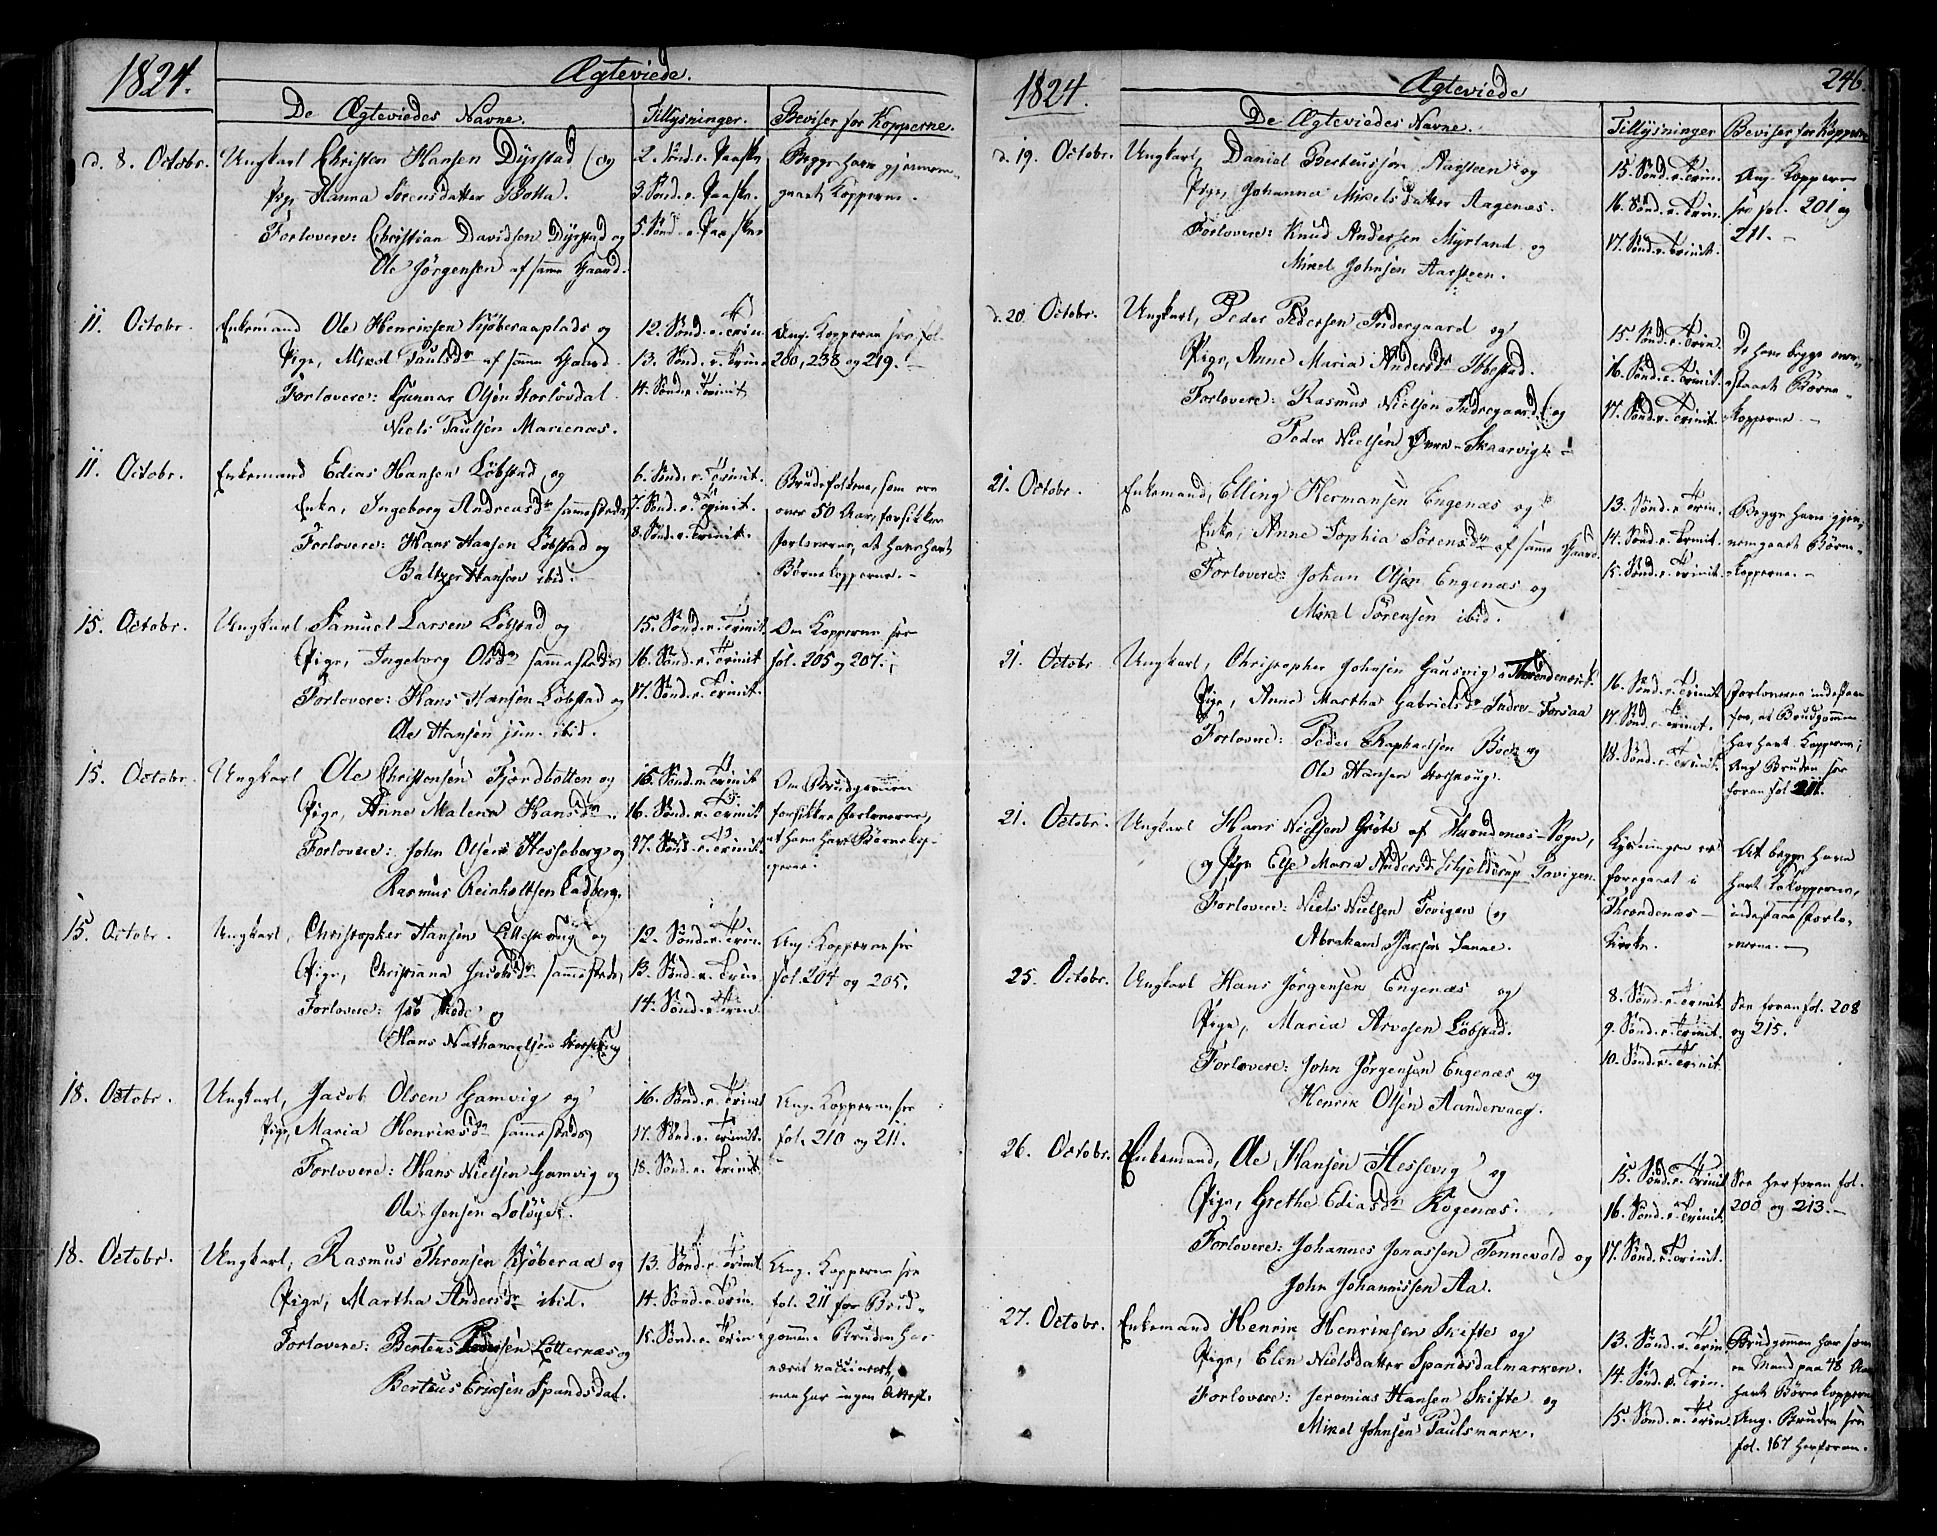 1824.
Ægteviede.
De Ægteviedes Navne.
Tillysninger.
Beviser for Kopperne.
d. 8. Octobr.
Ungkarl Christen Hansen Dyrstad og
Pige Hanna Sørensdatter Botta.
Forlovere: Christian Davidsen Dyrstad og
Ole Jørgensen af samme Gaard.
2. Sønd. e. Paaske
3. Sønd. e. Paaske.
5. Sønd. e. Paaske
Begge have gjennem-
gaaet Kopperne.
11. Octobr.
Enkemand Ole Henriksen Kjøberaaplads og
Pige, Mikel Paulsdr af samme Gaard.
Forlovere: Gunnar Olsen Storlovdal.
Niels Paulsen Marienæs.
12. Sønd. e. Trin.
13. Sønd. e. Trin.
14. Sønd. e. Trinit
Ang. Kopperne see fol.
200, 238 og 219. -
11. Octobr.
Enkemand Edias Hansen Løbstad og
Enke, Ingeborg Andreasdr sammesteds,
Forlovere: Hans Hansen Løbstad og
Baltzer Hansen ibid. -
6. Sønd. e. Trinit.
7. Sønd. e. Trinit.
8. Sønd. e. Trinit.
Brudefolkene, som ere
over 50 Aar, forsikkre
Forloverne, at have havt
Børnekopperne. -
15. Octobr.
Ungkarl Samuel Larsen Løbstad og
Pige, Ingeborg Olsdr sammesteds
Forlovere: Hans Hansen Løbstad og
Ole Hansen jun. ibid.
15. Sønd. e. Trinit.
16. Sønd. e. Trinit
17. Sønd. e. Trinit.
Om Kopperne see
fol. 205 og 207. -
15. Octobr.
Ungkarl Ole Christensen Fjordbotten og
Pige, Anne Malena Hansdr.
Forlovere: John Olsen Hesseberg og
Rasmus Reinholtsen Ladberg.
15. Sønd. e. Trinit.
16. Sønd. e. Trinit.
17. Sønd. e. Trinit.
Om Brudgommen
forsikkre Forloverne,
at have havt Børnekop-
perne.
15. Octobr.
Ungkarl, Christopher Hansen og
Pige, Christianna Jacobsdr sammesteds,
Forlovere: og
Hans Nathanaelsen
12. Sønd. e. Trin.
13. Sønd. e. Trin.
14. Sønd. e. Trin
Ang. Kopperne see
fol. 204 og 205.
18. Octobr.
Ungkarl, Jacob Olsen Gamvig og
Pige, Maria Henriksdr sammesteds
Forlovere: Hans Nielsen Gamvig og
Ole Jensen
16. Sønd. e. Trinit
17. Sønd. e. Trinit.
18. Sønd. e. Trinit.
Ang. Kopperne see
fol. 210 og 211.
18. Octobr.
Ungkarl, Rasmus Thronsen Kjøberaa og
Pige, Martha Andersdr ibid.
Forlovere: Berteus Pedersen Løtternæs og
Berteus Eriksen Spandsdal.
13. Sønd. e. Trinit
14. Sønd. e. Trin.
15. Sønd. e. Trin.
Ang. Kopperne see
fol. 211 for Brud-
gommen. Bruden har
været vaccineret,
men har ingen Attest.
1824.
Ægteviede
246.
De Ægteviedes Navne.
Tillysninger
Beviser for Kopperne
d. 19. Octobr.
Ungkarl, Daniel Berteussen Aarsteen og
Pige, Johanna Mikelsdatter Aagenæs.
Forlovere: Knud Andersen Myrland og
Mikel Johnsen Aarsteen.
15. Sønd. e. Trin.
16. Sønd. e. Trin.
17. Sønd. e. Trinit.
Ang. Kopperne
see fol. 201 og
211. -
d. 20. Octobr.
Ungkarl, Peder Pedersen Indergaard og
Pige, Anne Maria Andersdr Ibbestad.
Forlovere: Rasmus Nielsen Indregaard og
Peder Nielsen Øvre-Skaarvig.
15. Sønd. e. Trin.
16. Sønd. e. Trinit.
17. Sønd. e. Trinit.
De have begge over-
staaet Børne-
kopperne. -
21. Octobr.
Enkemand, Elling Hermansen Engenæs og
Enke, Anne Sophia Sørensdr af samme Gaard.
Forlovere: Johan Olsen Engenæs og
Mikel Sørensen ibid.
13. Sønd. e. Trin.
14. Sønd. e. Trinit.
15. Sønd. e. Trinit.
Begge have gjen-
nemgaaet Børne-
kopperne. -
21. Octobr
Ungkarl, Christopher Johnsen Gausvig i Throndenæs
Pige, Anne Martha Gabrielsdr Indre-Forsaa
Forlovere: Peder Raphaelsen Bøe og
Ole Hansen
16. Sønd. e. Trinit
17. Sønd. e. Trinit.
18. Sønd. e. Trinit.
Forloverne indestaae
for, at Brudgommen
har havt Kopperne;
Ang. Bruden see
foran fol. 211.
21. Octobr.
Ungkarl Hans Nielsen Grøte af Throndenæs-Sogn,
og Pige Else Maria Andersdr Schjelderup Tovigen.
Forlovere: Niels Nielsen Tovigen og
Abraham Sanne.
Lysningen er
foregaaet i
Throndenæs-
Kirke.
At begge have
havt Kopperne,
indestaae Forlo-
verne. -
25. Octobr.
Ungkarl Hans Jørgensen Engenæs og
Pige, Maria Arvesen Løbstad.
Forlovere: John Jørgensen Engenæs og
Henrik Olsen Aandervaag.
8. Sønd. e. Trinit
9. Sønd. e. Trinit.
10. Sønd. e. Trinit
See foran fol. 208
og 215.
26. Octobr.
Enkemand, Ole Hansen Hessevig og
Pige, Grethe Ediasdr Rogenæs.
Forlovere: Johannes Jonassen Tennevold og
John Johannissen Aa.
15. Sønd. e. Trinit
16. Sønd. e. Trinit.
17. Sønd. e. Trinit.
See her foran fol.
200 og 213. -
27. Octobr.
Enkemand Henrik Henriksen Skifte og
Pige, Elen Nielsdatter Spandsdalmarken.
Forlovere: Jeremias Hansen Skifte og
Mikel Johnsen Paulsmark.
13. Sønd. e. Trin
14. Sønd. e. Trin.
15. Sønd. e. Trin.
Brudgommen har som
en Mand paa 48 Aar
havt Børnekopperne
Ang. Bruden see
fol. 167 herforan.